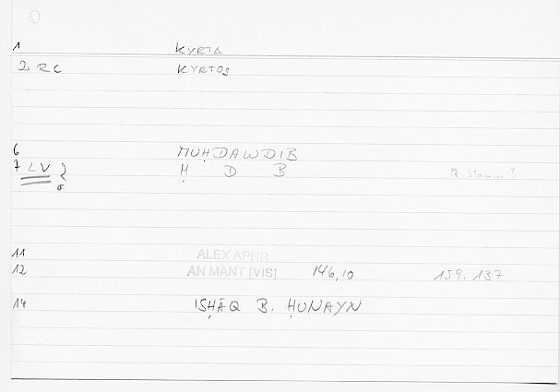 1 KYRTA
2 RC KYRTOS
6 MUḤDAWDIB
7 LV Ḥ D B
11 ALEX APHR
12 AN MANT [VIS] 146,10 159, 137
14 ISḤĀQ B. ḤUNAYN